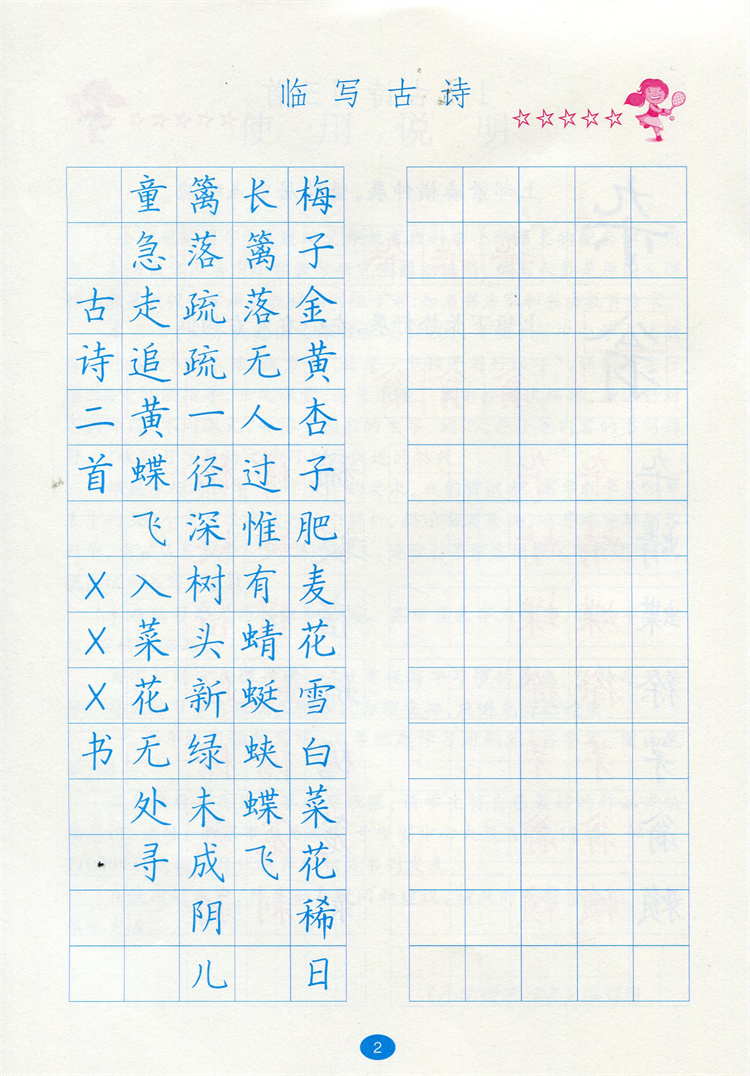 临写古诗
☆☆☆☆☆
梅子金黄杏子肥麦花雪白菜花稀日
长篱落无人过惟有蜻蜓蛱蝶飞
篱落疏疏一径深树头新绿未成阴儿
童急走追黄蝶飞入菜花无处寻
古诗二首 X X X 书
2